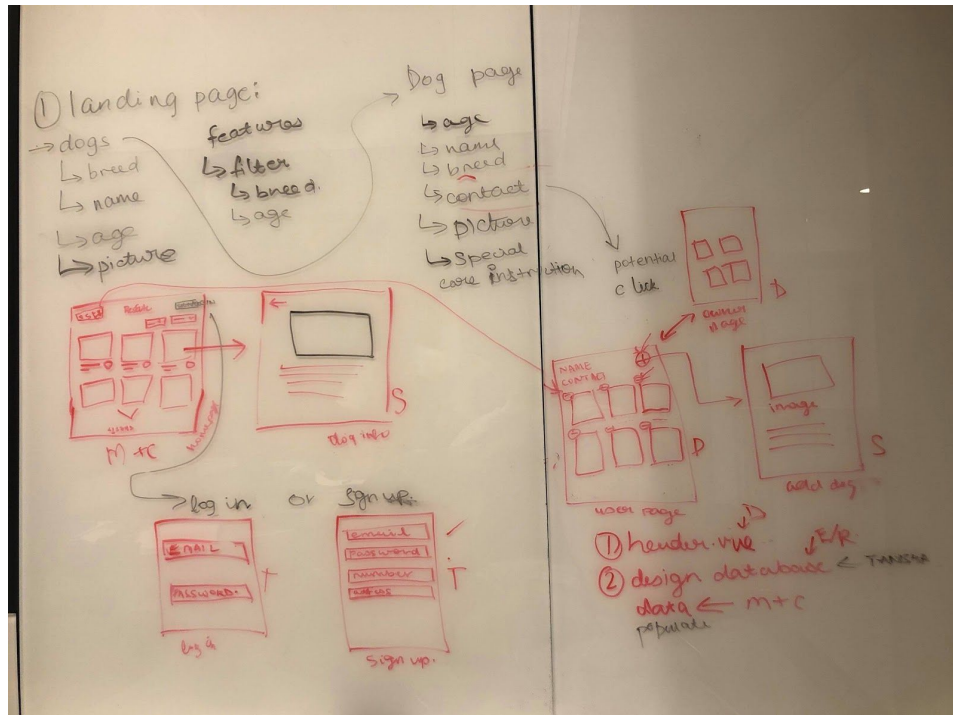 ① landing page:
→ dogs
↳ breed
↳ name
↳ age
↳ picture
features
↳ filter
↳ breed.
↳ age
Dog page
↳ age
↳ name
↳ breed
↳ contact
↳ picture
↳ special
care instruction
potential
click
owner
page
D
M+C
homepage
S
dog info
NAME
CONTACT
D
user page
image
S
add dog
→ log in or Sign up.
EMAIL
PASSWORD.
T
log in
email
password
number
T
sign up.
D
① header.vue
E/R
② design database ←
data ← m+c
populate